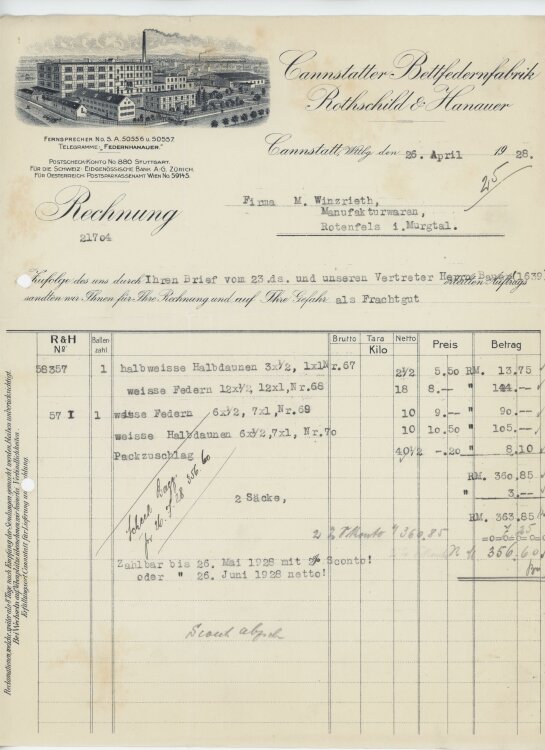 Cannstatter Bettfedernfabrik
Rothschild & Hanauer
FERNSPRECHER No. S. A. 50556 u. 50557.
TELEGRAMME: „FEDERNHANAUER."
POSTSCHECK-KONTO No 880 STUTTGART.
FÜR DIE SCHWEIZ: EIDGENÖSSISCHE BANK A.-G. ZÜRICH.
FÜR OESTERREICH: POSTSPARKASSENAMT WIEN No. 59145.
Cannstatt, Wttbg den 26. April 1928.
25
Rechnung
21704
Firma M. Winzrieth,
Manufakturwaren,
Rotenfels i.Murgtal.
Zufolge des uns durch Ihren Brief vom 23.ds. und unseren Vertreter Herrn (1639) erteilten Auftrags
sandten wir Ihnen für Ihre Rechnung und auf Ihre Gefahr als Frachtgut
R&H No. Ballenzahl Brutto Tara Netto Kilo Preis Betrag
58357 1 halbweisse Halbdaunen 3x½, 1x1 Nr.67 2½ 5.50 RM. 13.75
weisse Federn 12x½, 12x1, Nr.68 18 8.-- " 144.--
57 I 1 weisse Federn 6x½, 7x1, Nr.69 10 9.-- " 90.--
weisse Halbdaunen 6x½, 7x1, Nr.70 10 10.50 " 105.--
Packzuschlag 40½ -.20 " 8.10
RM. 360.85
2 Säcke, " 3.--
RM. 363.85
2% Skonto 360.85 7 25
356.60
356.60
Zahlbar bis 26. Mai 1928 mit 2% Sconto!
oder " 26. Juni 1928 netto!
Reklamationen, welche später als 8 Tage nach Empfang der Sendungen gemacht werden, bleiben unberücksichtigt.
Erfüllungsort Cannstatt für Lieferung und Zahlung.